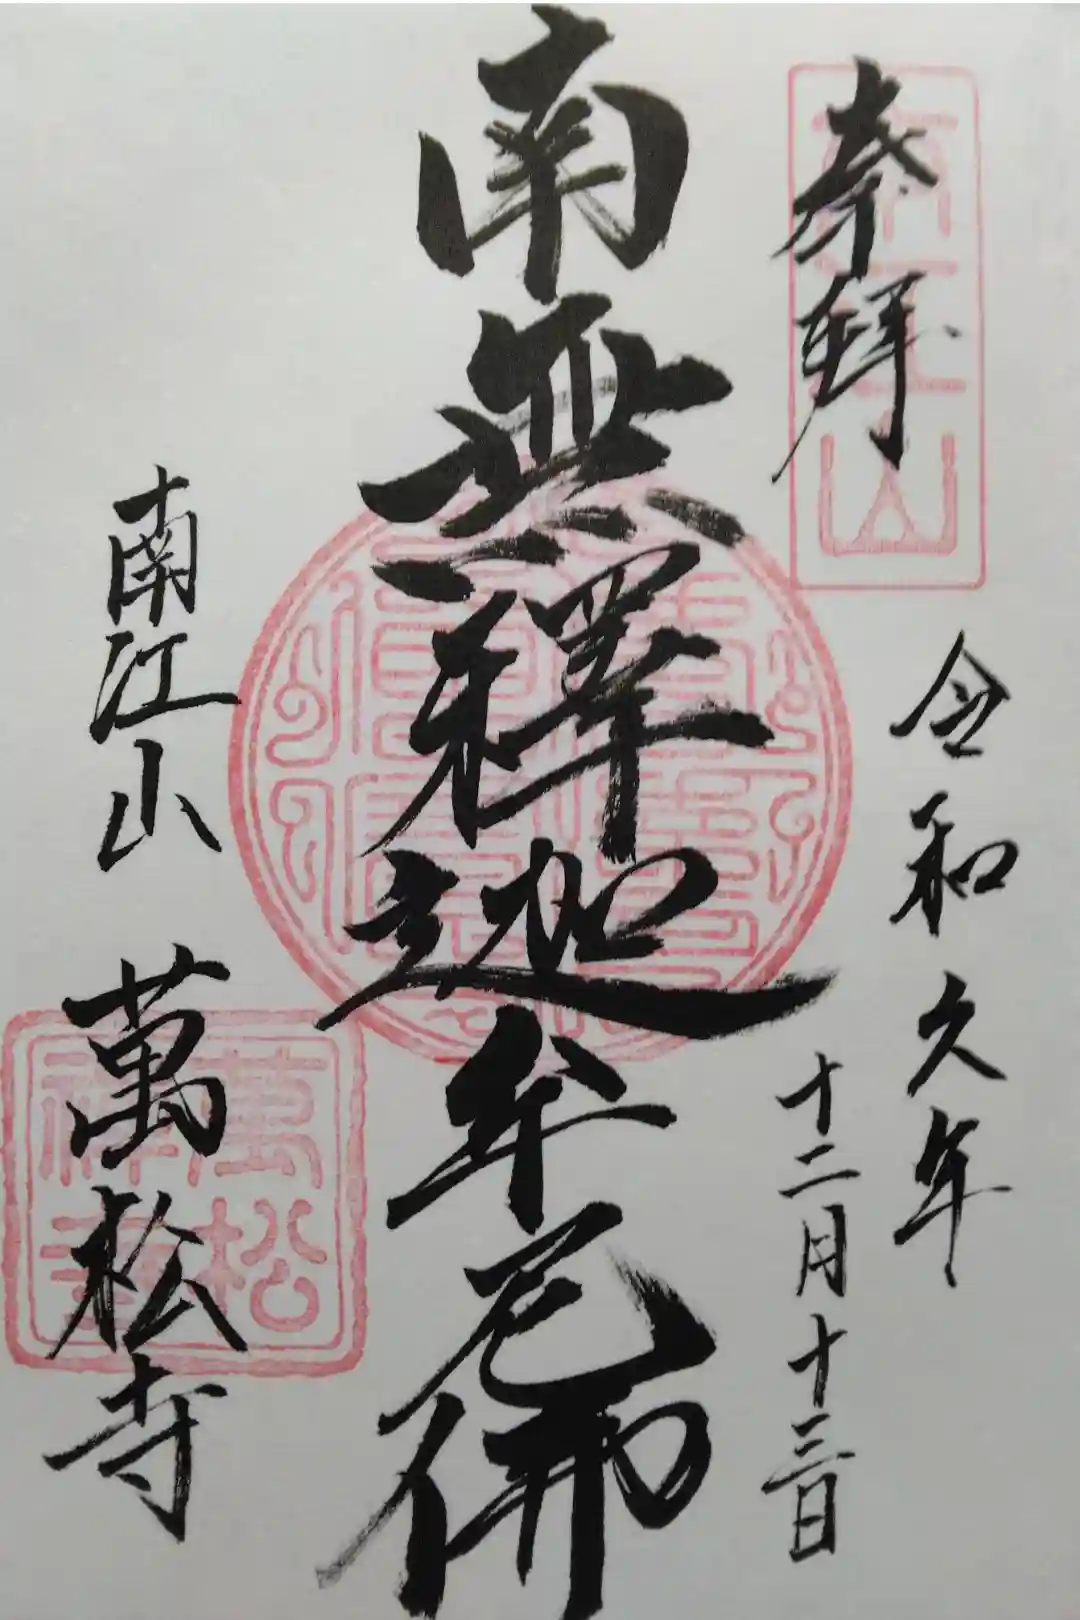 奉拜
南江山
令和久年
十二月十三日
南無釋迦牟尼佛
南江山 萬松寺
萬松